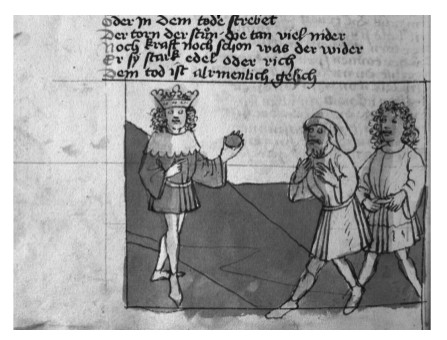 Oder in dem tode strebet
Der torn der stůn die tan viel nider
Noch kraft noch schon was der wider
Er sy stark edel oder rich
Dem tod ist alrmenlich gelich